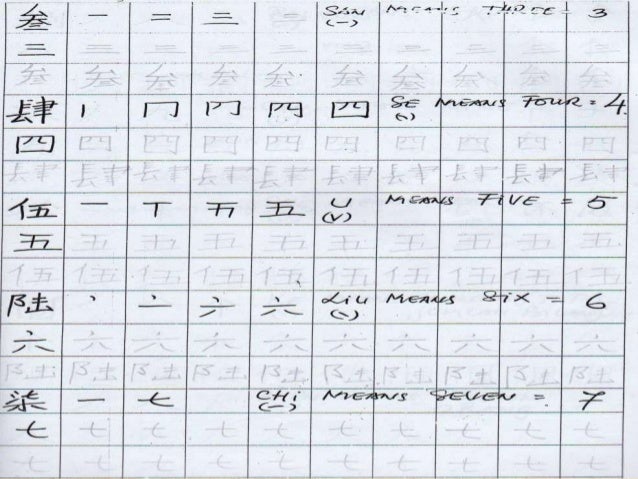 叁 一 二 三 二 SAN (一) MEANS THREE 3
三 三 三 三 三 三 三 三 三 三
叁 叁 叁 叁 叁 叁 叁 叁 叁 叁
肆 丨 冂 冂 四 四 SE (、) MEANS FOUR = 4
四 四 四 四 四 四 四 四 四 四
肆 肆 肆 肆 肆 肆 肆 肆 肆 肆
伍 一 丅 五 五 U (V) MEANS FIVE = 5
五 五 五 五 五 五 五 五 五 五
伍 伍 伍 伍 伍 伍 伍 伍 伍 伍
陆 丶 亠 六 六 LIU (、) MEANS SIX = 6
六 六 六 六 六 六 六 六 六 六
陆 陆 陆 陆 陆 陆 陆 陆 陆 陆
柒 一 七 CHi (一) MEANS SEVEN = 7
七 七 七 七 七 七 七 七 七 七
七 七 七 七 七 七 七 七 七 七